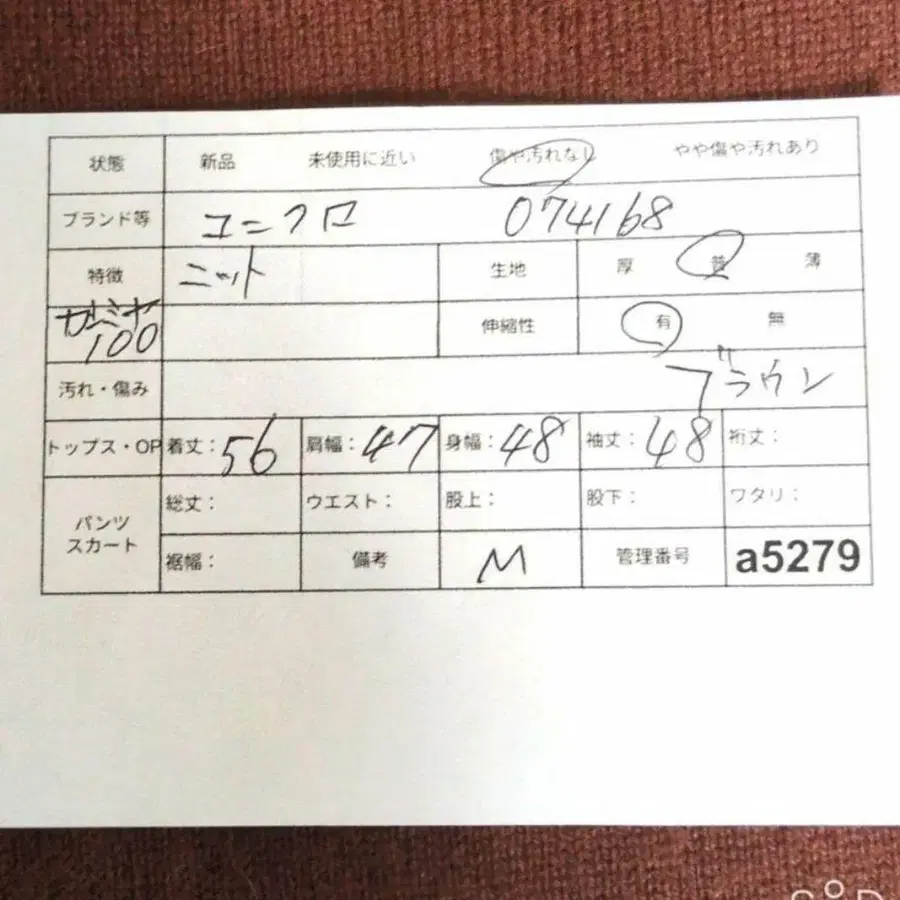 状態 新品 未使用に近い 傷や汚れなし やや傷や汚れあり
ブランド等 ユニクロ 074168
特徴 ニット 生地 厚 普 薄
カシミヤ 伸縮性 有 無
100
汚れ・傷み ブラウン
トップス・OP 着丈:56 肩幅:47 身幅:48 袖丈:48 裄丈:
パンツ 総丈: ウエスト: 股上: 股下: ワタリ:
スカート 裾幅: 備考 M 管理番号 a5279